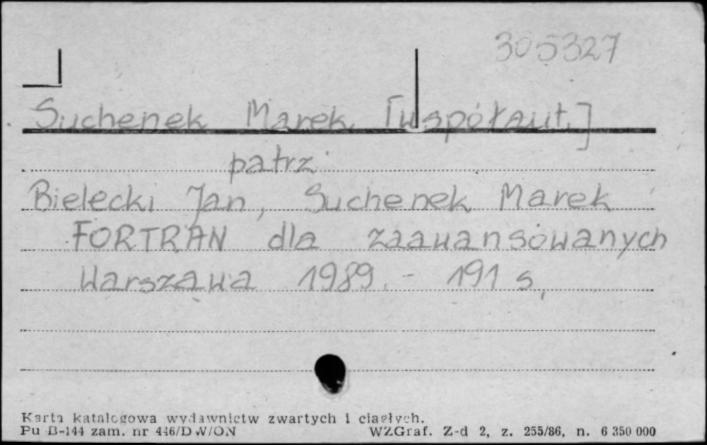 305327
Suchenek Marek [współaut.]
patrz
Bielecki Jan, Suchenek Marek
FORTRAN dla zaawansowanych
Warszawa 1989. - 191 s.
Karta katalogowa wydawnictw zwartych i ciągłych.
Pu B-144 zam. nr 446/DW/ON WZGraf. Z-d 2, z. 255/86, n. 6 350 000